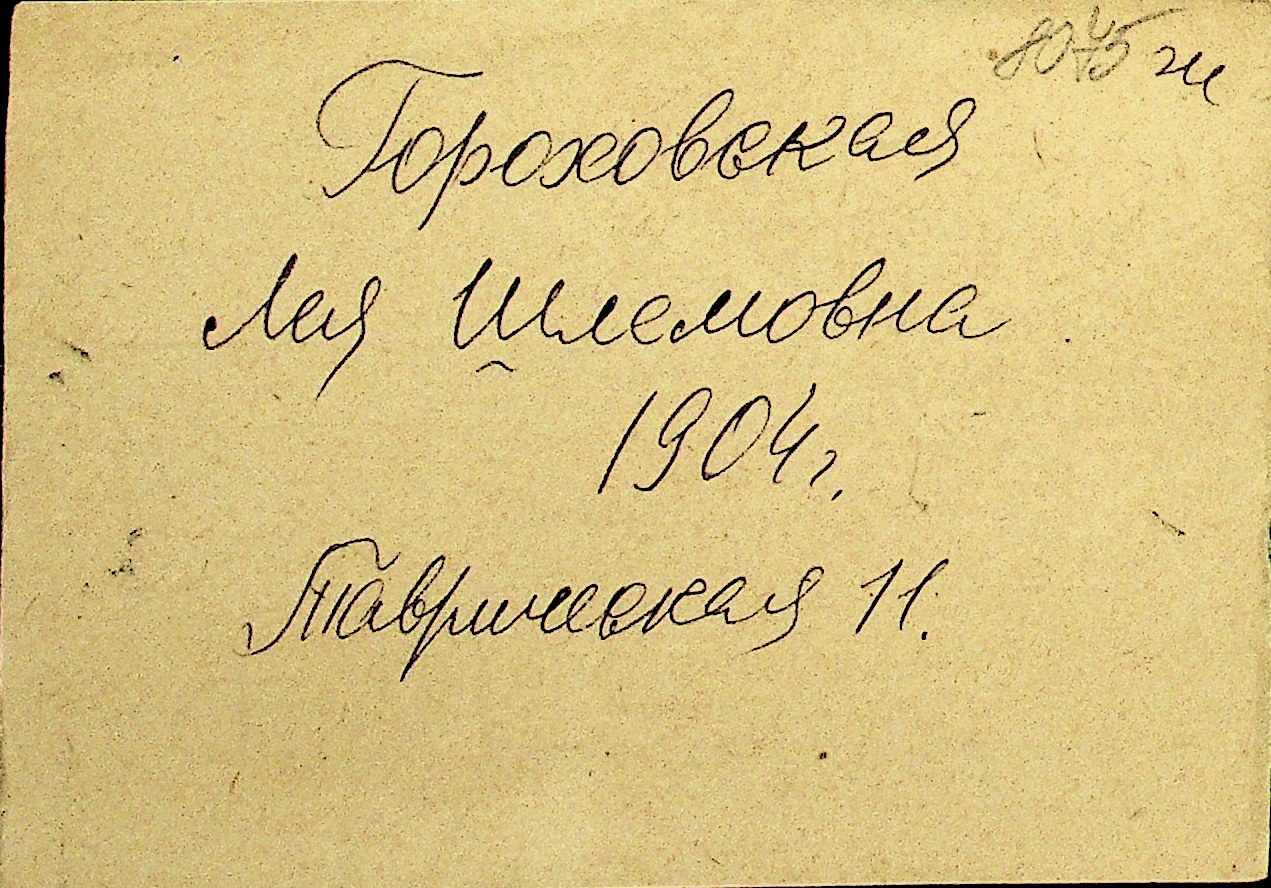 ж
Гороховская
Лея Шлемовна
1904 г.
Таврическая 11.